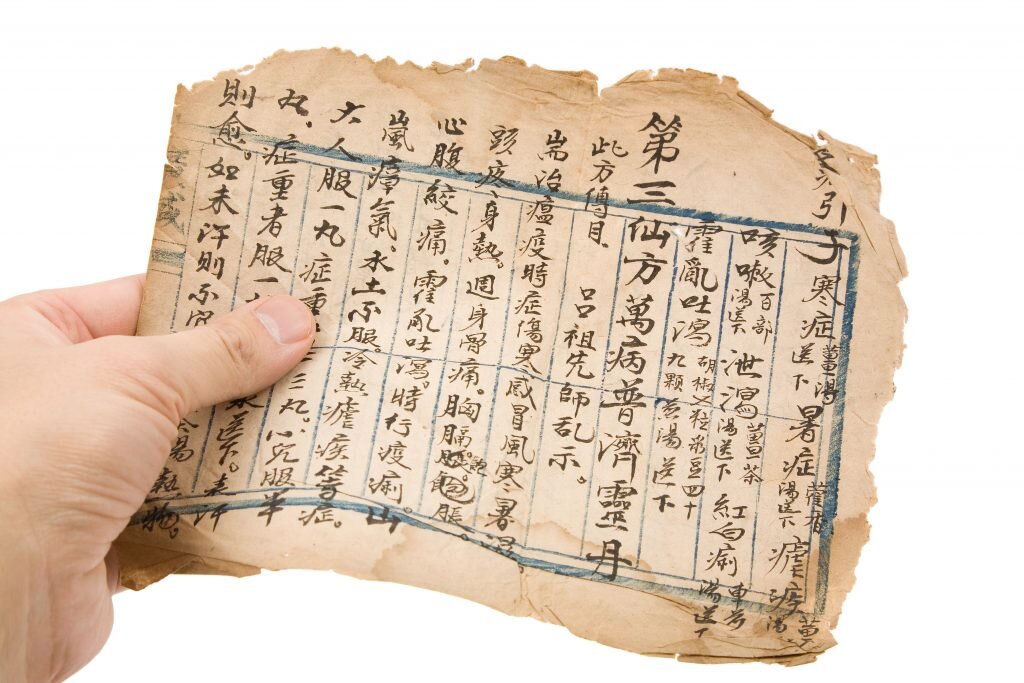 引子寒症薑湯送下暑症藿香湯送下瘧疾
咳嗽百部湯送下泄瀉薑茶湯送下紅白痢車前湯送下
霍亂吐瀉胡椒九顆菉豆四十粒湯送下
第三仙方萬病普濟靈丹
呂祖先師乩示。
此方傳自
耑治瘟疫時症傷寒感冒風寒暑濕
頭疼身熱。週身骨痛。胸膈飽脹
心腹絞痛。霍亂吐瀉。時行疫痢。山
嵐瘴氣。水土不服。冷熱瘧疾等症。
大人服一丸症重
丸、症重者服一三丸。小兒服半
則愈。如未汗則不送下。未汗
湯熱物。